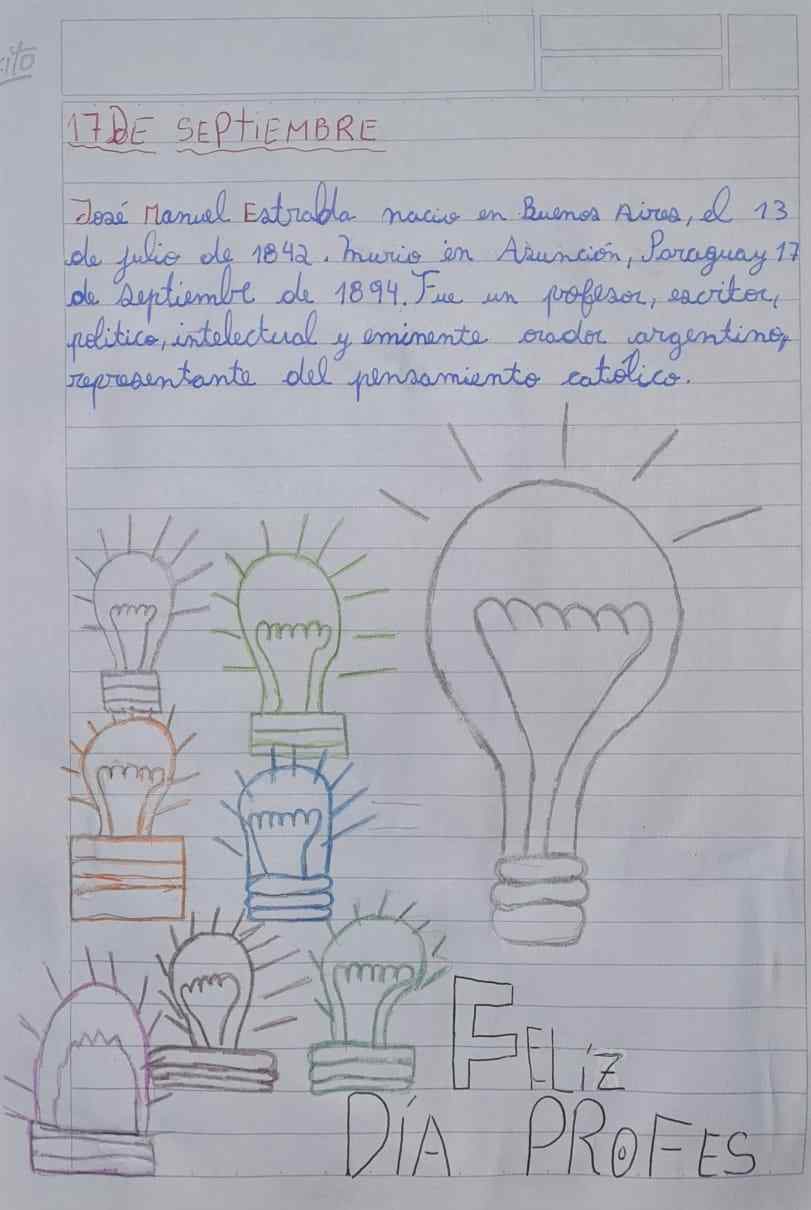 17 DE SEPTIEMBRE
José Manuel Estrabda nacio en Buenos Aires, el 13
de julio de 1842. Murio en Asunción, Paraguay 17
de septiembre de 1894. Fue un profesor, escritor,
politico, intelectual y eminente orador argentino,
representante del pensamiento católico.
FELíZ
DíA PROFES